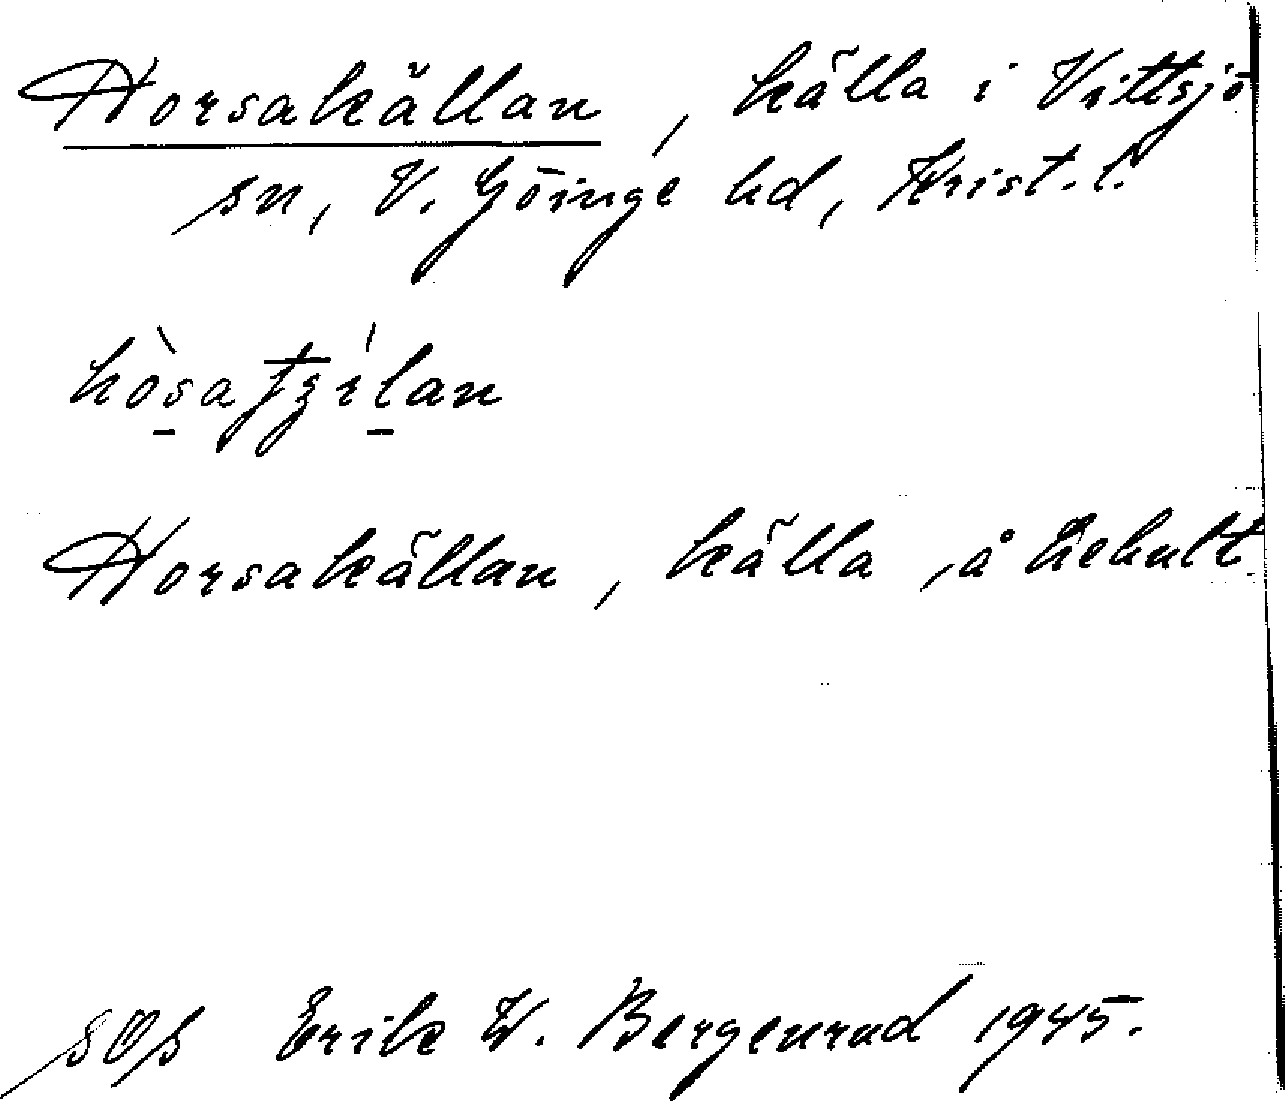 Horsakällan, källa i Vittsjö
sn, V. Göinge hd, Krist. l.
Horsakällan, källa, å
SOS Erik W. Bergenrud 1945.